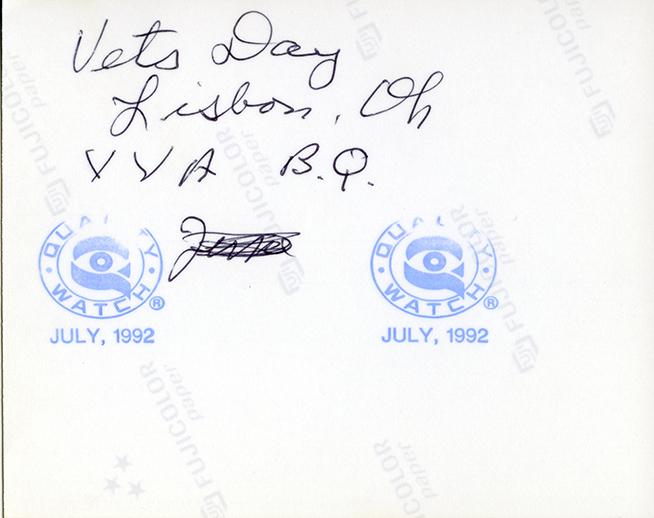 Vets Day
Lisbon, Oh
VVA B.Q.
QUALITY WATCH ®
JULY, 1992
QUALITY WATCH ®
JULY, 1992
FUJICOLOR paper
FUJICOLOR paper
FUJICOLOR paper
FUJICOLOR paper
FUJICOLOR paper
FUJICOLOR paper